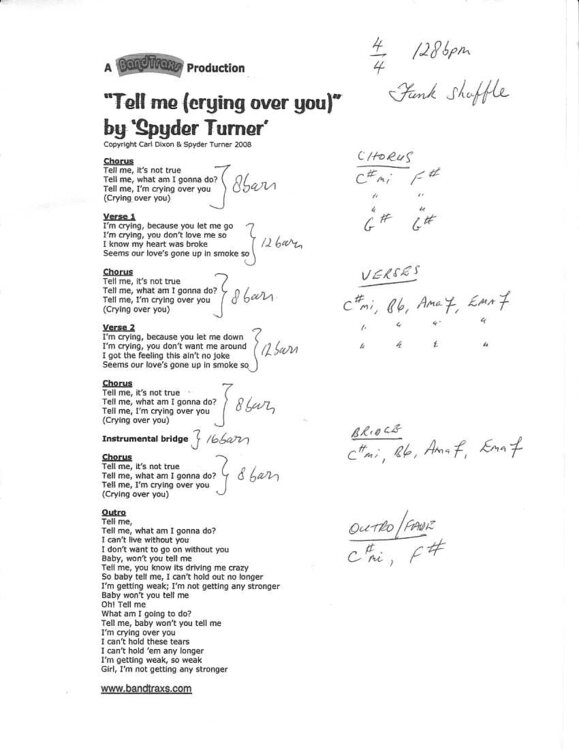 4/4 128bpm
Funk Shuffle
A BandTraxs Production
"Tell me (crying over you)"
by 'Spyder Turner'
Copyright Carl Dixon & Spyder Turner 2008
Chorus
Tell me, it's not true
Tell me, what am I gonna do?
Tell me, I'm crying over you
(Crying over you)
8bars
Verse 1
I'm crying, because you let me go
I'm crying, you don't love me so
I know my heart was broke
Seems our love's gone up in smoke so
12bars
Chorus
Tell me, it's not true
Tell me, what am I gonna do?
Tell me, I'm crying over you
(Crying over you)
8bars
Verse 2
I'm crying, because you let me down
I'm crying, you don't want me around
I got the feeling this ain't no joke
Seems our love's gone up in smoke so
12bars
Chorus
Tell me, it's not true
Tell me, what am I gonna do?
Tell me, I'm crying over you
(Crying over you)
8bars
Instrumental bridge 16bars
Chorus
Tell me, it's not true
Tell me, what am I gonna do?
Tell me, I'm crying over you
(Crying over you)
8bars
Outro
Tell me,
Tell me, what am I gonna do?
I can't live without you
I don't want to go on without you
Baby, won't you tell me
Tell me, you know its driving me crazy
So baby tell me, I can't hold out no longer
I'm getting weak; I'm not getting any stronger
Baby won't you tell me
Oh! Tell me
What am I going to do?
Tell me, baby won't you tell me
I'm crying over you
I can't hold these tears
I can't hold 'em any longer
I'm getting weak, so weak
Girl, I'm not getting any stronger
www.bandtraxs.com
CHORUS
C#mi F#
" "
" "
G# G#
VERSES
C#mi, B6, Ama7, Ema7
" " " "
" " " "
BRIDGE
C#mi, B6, Ama7, Ema7
OUTRO/FADE
C#mi, F#